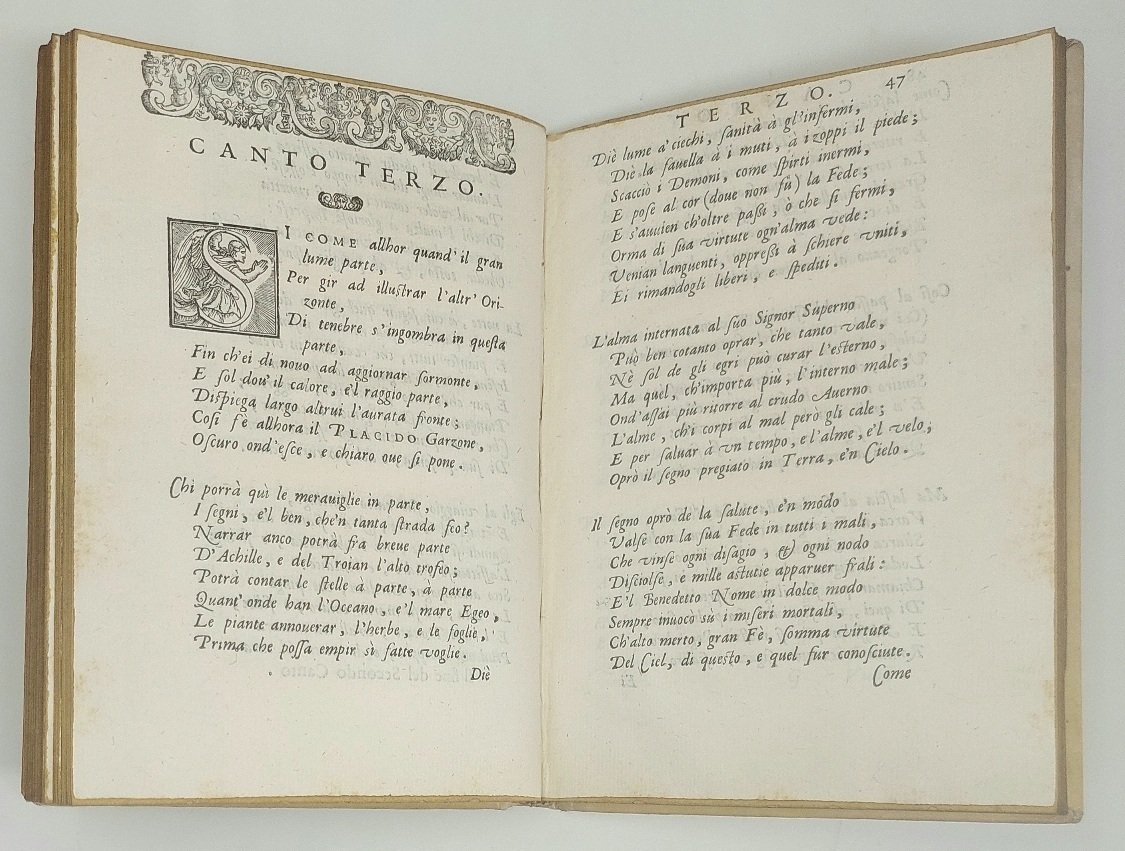 CANTO TERZO.
SI COME allhor quand'il gran
lume parte,
Per gir ad illustrar l'altr' Ori-
zonte,
Di tenebre s'ingombra in questa
parte,
Fin ch'ei di nouo ad aggiornar sormonte,
E sol dou'il calore, e'l raggio parte,
Dispiega largo altrui l'aurata fronte;
Cosi fè allhora il PLACIDO Garzone,
Oscuro ond'esce, e chiaro oue si pone.
Chi porrà quì le merauiglie in parte,
I segni, e'l ben, che'n tanta strada feo?
Narrar anco potrà fra breue parte
D'Achille, e del Troian l'alto trofeo;
Potrà contar le stelle à parte, à parte
Quant'onde han l'Oceano, e'l mare Egeo,
Le piante annouerar, l'herbe, e le foglie,
Prima che possa empir si fatte voglie.
Diè
TERZO. 47
Diè lume a' ciechi, sanità à gl'infermi,
Diè la fauella à i muti, à i zoppi il piede;
Scacciò i Demoni, come spirti inermi,
E pose al cor (doue non fù) la Fede;
E s'auuien ch'oltre passi, ò che si fermi,
Orma di sua virtute ogn'alma vede:
Venian languenti, oppressi à schiere vniti,
Ei rimandogli liberi, e spediti.
L'alma internata al suo Signor Superno
Può ben cotanto oprar, che tanto vale,
Nè sol de gli egri può curar l'esterno,
Ma quel, ch'importa più, l'interno male;
Ond'assai più ritorre al crudo Auerno
L'alme, ch'i corpi al mal però gli cale;
E per saluar à vn tempo, e l'alme, e'l velo,
Oprò il segno pregiato in Terra, e'n Cielo.
Il segno oprò de la salute, e'n mōdo
Valse con la sua Fede in tutti i mali,
Che vinse ogni disagio, & ogni nodo
Disciolse, e mille astutie apparuer frali:
E'l Benedetto Nome in dolce modo
Sempre inuocò sù i miseri mortali,
Ch'alto merto, gran Fè, somma virtute
Del Ciel, di questo, e quel fur conosciute.
Come